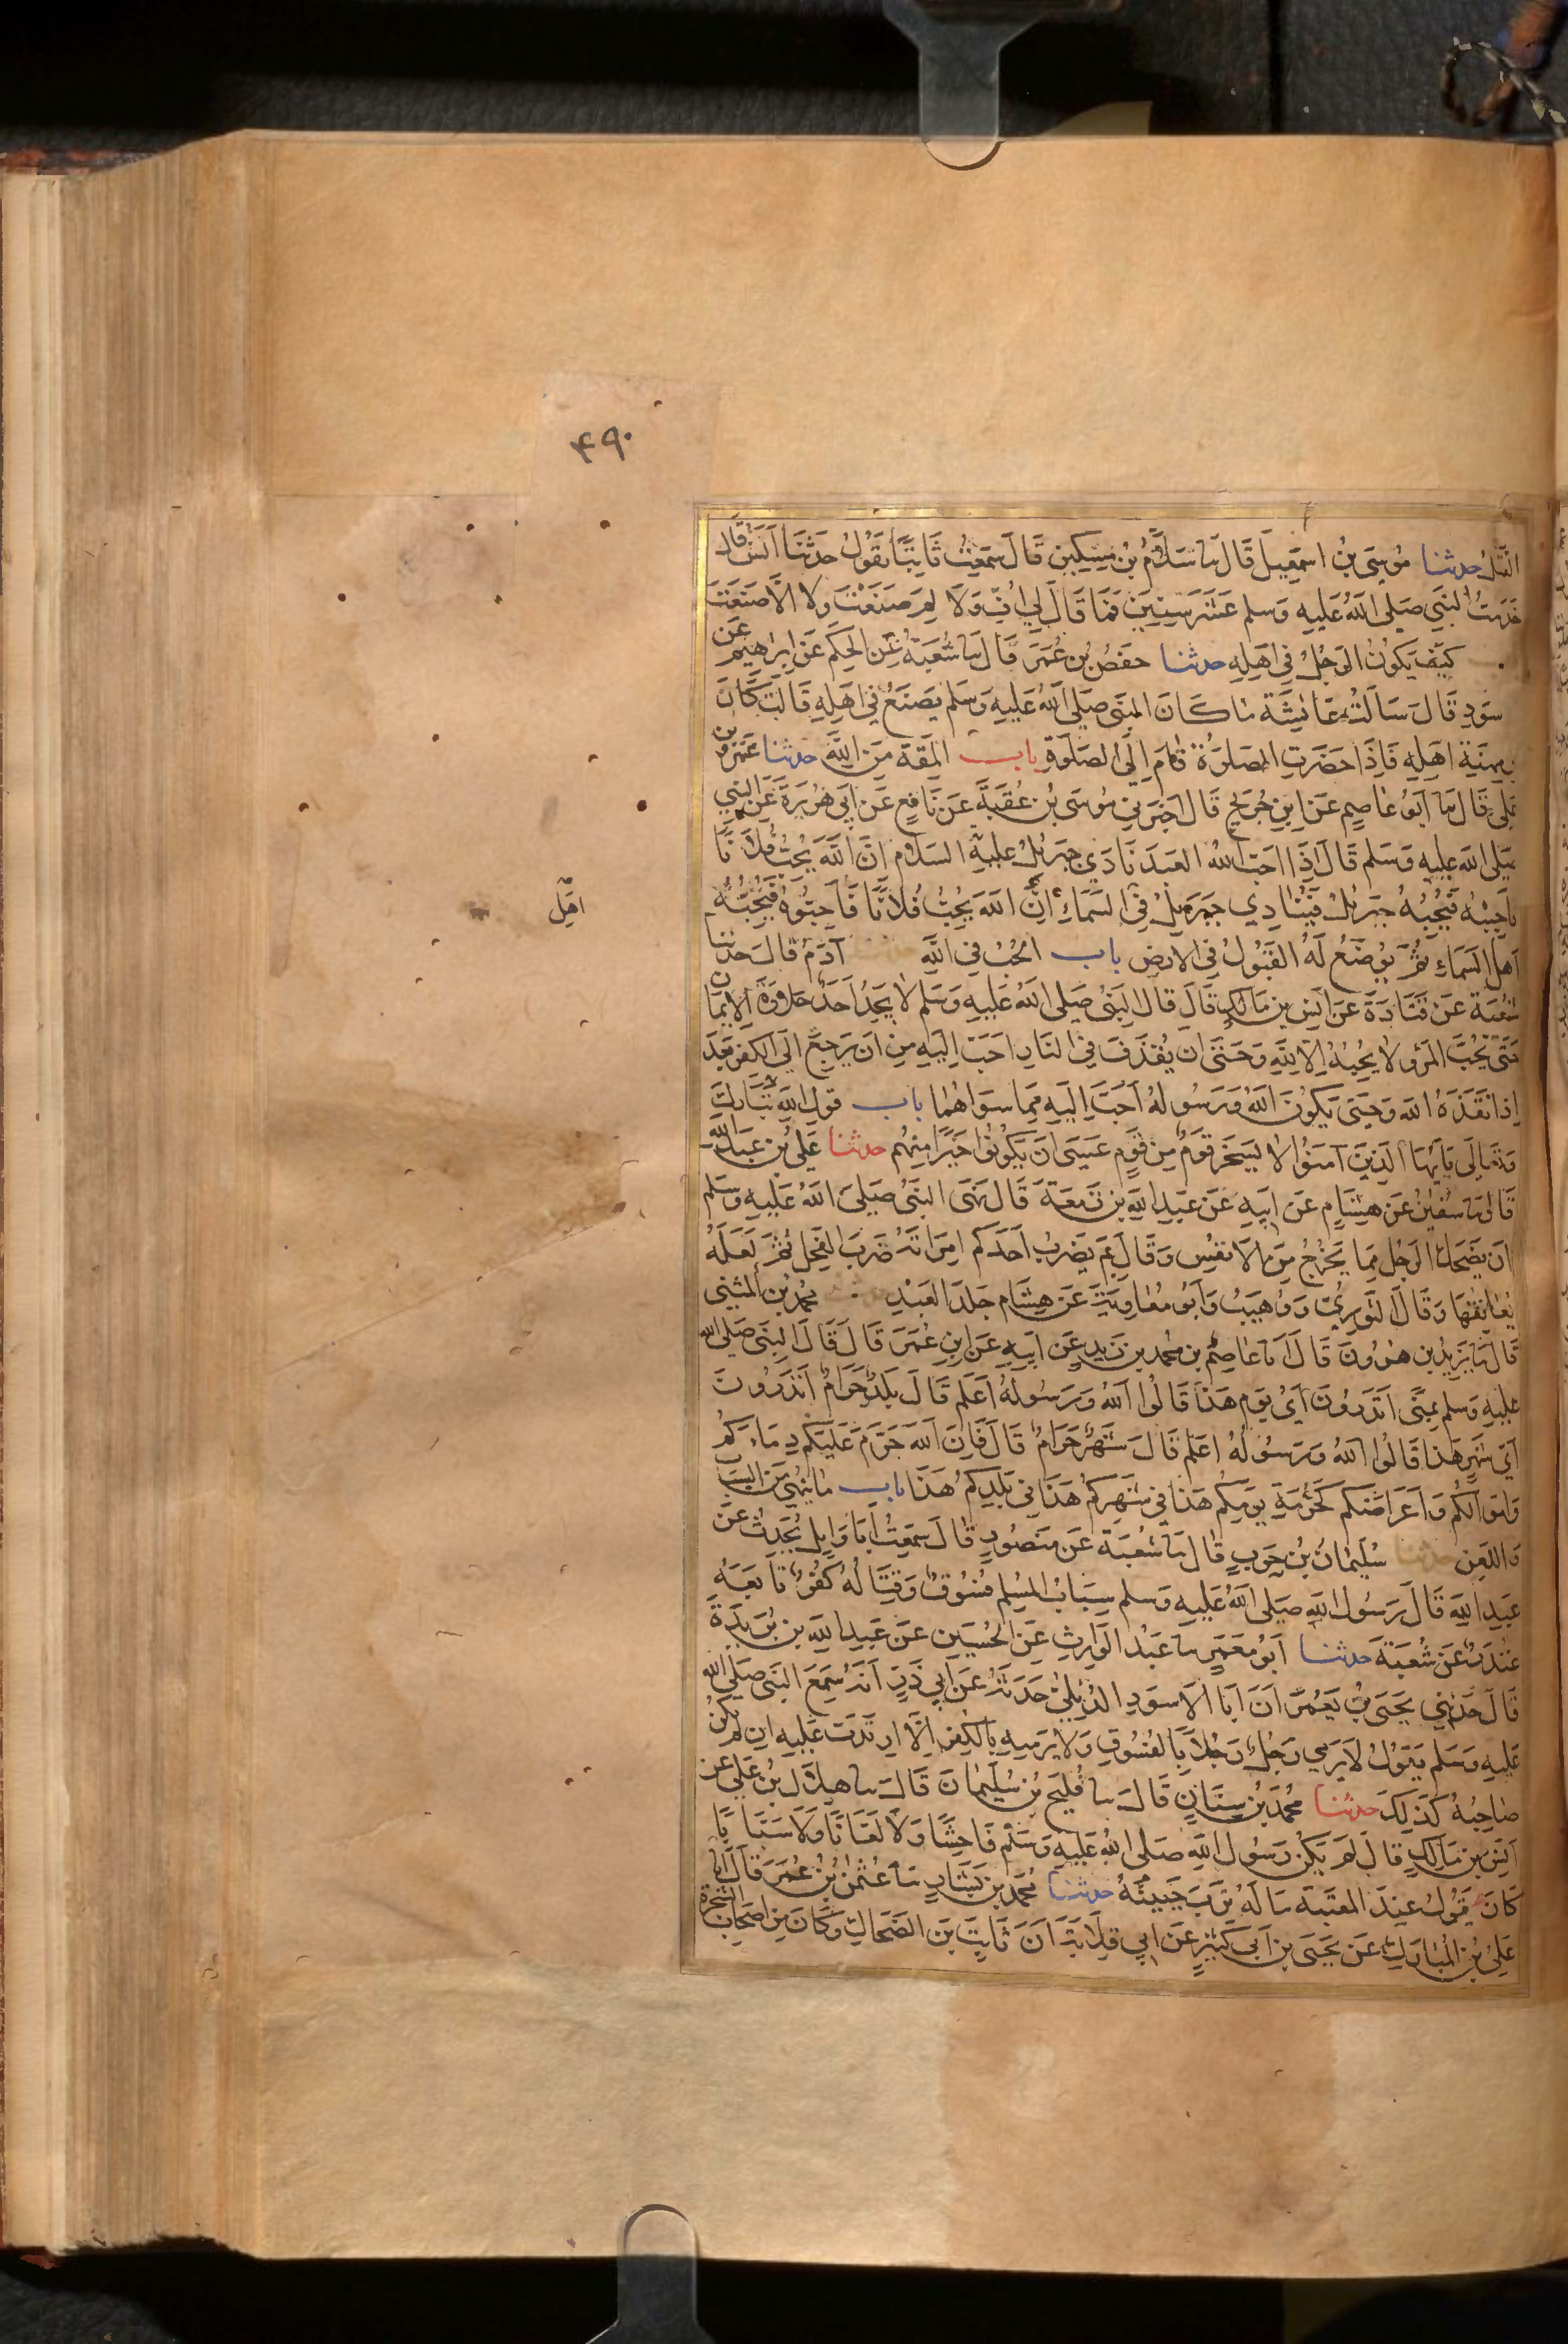 ۴۹۰
القتل حدثنا موسى بن اسمعيل قال نا سلام بن مسكين قال سمعت ثابتا يقول حدثنا انس قال
خدمت النبي صلى الله عليه وسلم عشر سنين فما قال لي اف ولا لم صنعت ولا الا صنعت
كيف يكون الرجل في اهله حدثنا حفص بن عمر قال نا شعبة عن الحكم عن ابراهيم عن
سود قال سالت عائشة ما كان النبي صلى الله عليه وسلم يصنع في اهله قالت كان
مهنة اهله فاذا حضرت الصلوة قام الى الصلوة باب المقة من الله حدثنا عمرو بن
علي قال نا ابو عاصم عن ابن جريج قال اخبرني موسى بن عقبة عن نافع عن ابي هريرة عن النبي
صلى الله عليه وسلم قال اذا احب الله العبد نادى جبرئل عليه السلام ان الله يحب فلانا
فاحببه فيحبه جبرئل فينادي جبرئل في السماء ان الله يحب فلانا فاحبوه فيحبه
اهل
اهل السماء ثم يوضع له القبول في الارض باب الحب في الله آدم قال حدثنا
شعبة عن قتادة عن انس بن مالك قال قال النبي صلى الله عليه وسلم لا يجد احد حلاوة الايمان
حتى يحب المرء لا يحبه الا لله وحتى ان يقذف في النار احب اليه من ان يرجع الى الكفر بعد
اذ انقذه الله وحتى يكون الله ورسوله احب اليه مما سواهما باب قول الله تبارك
وتعالى يايها الذين آمنوا لا يسخر قوم من قوم عسى ان يكونوا خيرا منهم حدثنا علي بن عبد الله
قال نا سفين عن هشام عن ابيه عن عبد الله بن زمعة قال نهى النبي صلى الله عليه وسلم
ان يضحك الرجل مما يخرج من الانفس وقال بم يضرب احدكم امراته ضرب الفحل ثم لعله
يعانقها وقال الثوري ووهيب وابو معاوية عن هشام جلد العبد محمد بن المثنى
قال نا يزيد بن هرون قال انا عاصم بن محمد بن زيد عن ابيه عن ابن عمر قال قال النبي صلى الله
عليه وسلم بمنى اتدرون اي يوم هذا قالوا الله ورسوله اعلم قال بلد حرام اتدرون
اي شهر هذا قالوا الله ورسوله اعلم قال شهر حرام قال فان الله حرم عليكم دماءكم
واموالكم واعراضكم كحرمة يومكم هذا في شهركم هذا في بلدكم هذا باب ما ينهى من السباب
واللعن حدثنا سليمان بن حرب قال نا شعبة عن منصور قال سمعت ابا وايل يحدث عن
عبد الله قال رسول الله صلى الله عليه وسلم سباب المسلم فسوق وقتاله كفر تابعه
غندر عن شعبة حدثنا ابو معمر نا عبد الوارث عن الحسين عن عبد الله بن بريدة
قال حدثني يحيى بن يعمر ان ابا الاسود الديلي حدثه عن ابي ذر انه سمع النبي صلى الله
عليه وسلم يقول لا يرمي رجل رجلا بالفسوق ولا يرميه بالكفر الا ارتدت عليه ان لم يكن
صاحبه كذلك حدثنا محمد بن سنان قال نا فليح بن سليمان قال نا هلال بن علي عن
انس بن مالك قال لم يكن رسول الله صلى الله عليه وسلم فاحشا ولا لعانا ولا سبابا
كان يقول عند المعتبة ما له ترب جبينه حدثنا محمد بن بشار نا عثمن بن عمر قال انا
علي بن المبارك عن يحيى بن ابي كثير عن ابي قلابة ان ثابت بن الضحاك وكان من اصحاب الشجرة